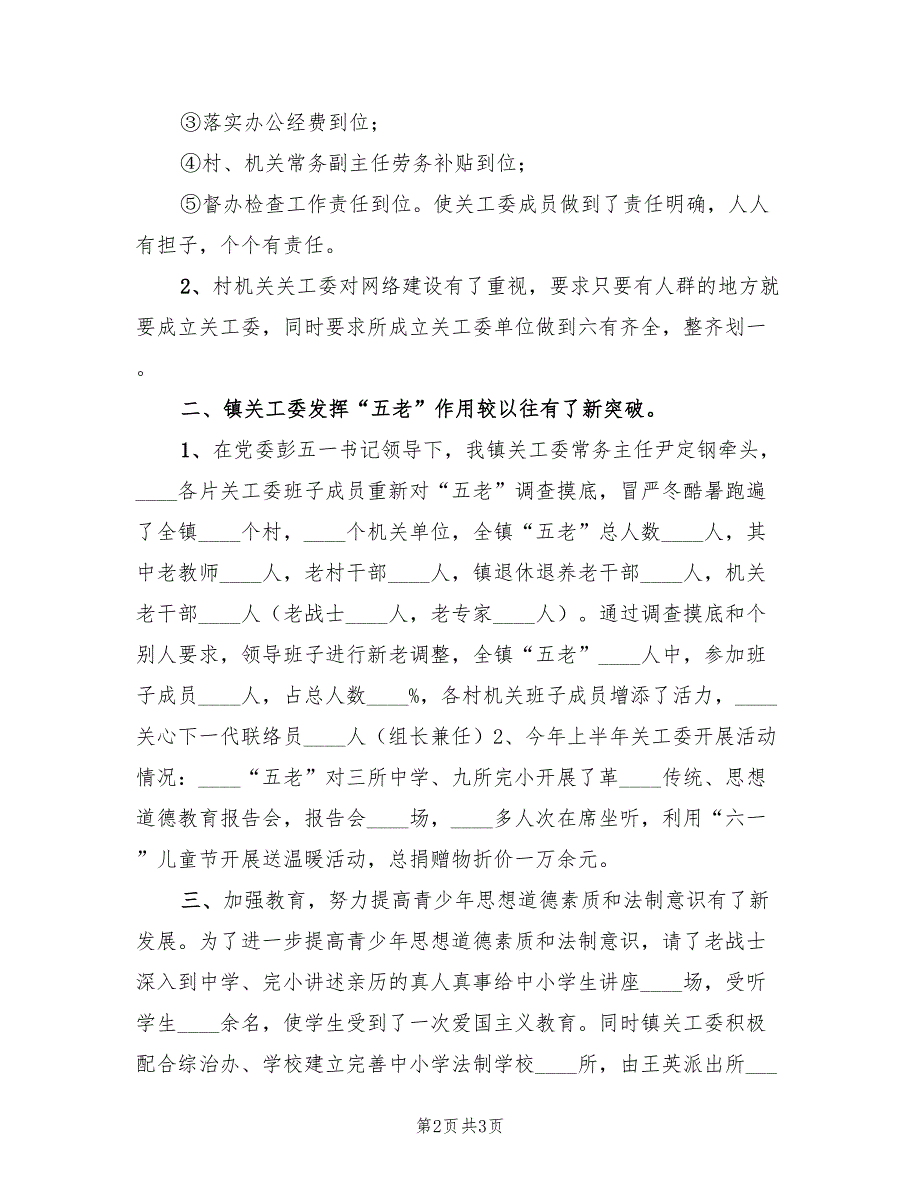 ③落实办公经费到位；
④村、机关常务副主任劳务补贴到位；
⑤督办检查工作责任到位。使关工委成员做到了责任明确，人人
有担子，个个有责任。
2、村机关关工委对网络建设有了重视，要求只要有人群的地方就
要成立关工委，同时要求所成立关工委单位做到六有齐全，整齐划一
。
二、镇关工委发挥“五老”作用较以往有了新突破。
1、在党委彭五一书记领导下，我镇关工委常务主任尹定钢牵头，
____各片关工委班子成员重新对“五老”调查摸底，冒严冬酷暑跑遍
了全镇____个村，____个机关单位，全镇“五老”总人数____人，其
中老教师____人，老村干部____人，镇退休退养老干部____人，机关
老干部____人（老战士____人，老专家____人）。通过调查摸底和个
别人要求，领导班子进行新老调整，全镇“五老”____人中，参加班
子成员____人，占总人数____%，各村机关班子成员增添了活力，____
关心下一代联络员____人（组长兼任）2、今年上半年关工委开展活动
情况：____“五老”对三所中学、九所完小开展了革____传统、思想
道德教育报告会，报告会____场，____多人次在席坐听，利用“六一
”儿童节开展送温暖活动，总捐赠物折价一万余元。
三、加强教育，努力提高青少年思想道德素质和法制意识有了新
发展。为了进一步提高青少年思想道德素质和法制意识，请了老战士
深入到中学、完小讲述亲历的真人真事给中小学生讲座____场，受听
学生____余名，使学生受到了一次爱国主义教育。同时镇关工委积极
配合综治办、学校建立完善中小学法制学校____所，由王英派出所___
第2页共3页